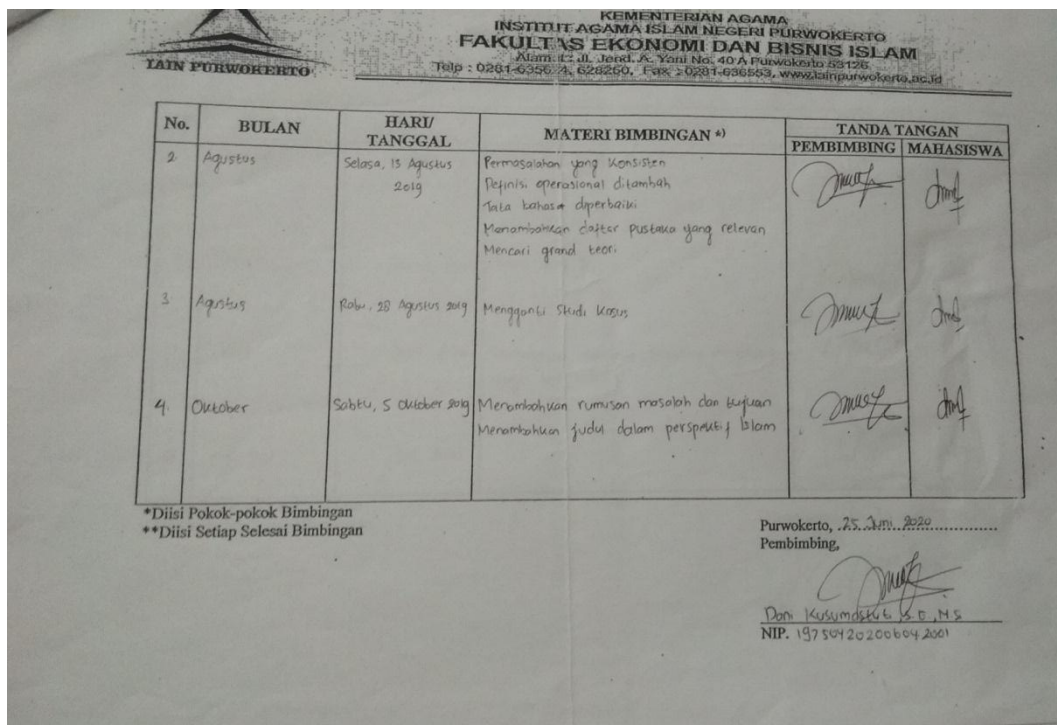 KEMENTERIAN AGAMA
INSTITUT AGAMA ISLAM NEGERI PURWOKERTO
FAKULTAS EKONOMI DAN BISNIS ISLAM
Alamat : Jl. Jend. A. Yani No. 40 A Purwokerto 53126
Telp : 0281-6356 4, 628250, Fax : 0281-636553, www.iainpurwokerto.ac.id
IAIN PURWOKERTO
No. BULAN HARI/ TANGGAL MATERI BIMBINGAN *) TANDA TANGAN
PEMBIMBING MAHASISWA
2. Agustus Selasa, 13 Agustus 2019 Permasalahan yang konsisten
Definisi operasional ditambah
Tata bahasa diperbaiki
Menambahkan daftar pustaka yang relevan
Mencari grand teori
3. Agustus Rabu, 28 Agustus 2019 Mengganti Studi Kasus
4. Oktober Sabtu, 5 Oktober 2019 Menambahkan rumusan masalah dan tujuan
Menambahkan judul dalam perspektif Islam
*Diisi Pokok-pokok Bimbingan
**Diisi Setiap Selesai Bimbingan
Purwokerto, 25 Juni 2020
Pembimbing,
Dani Kusumastuti, S.E., M.S
NIP. 197504202006042001